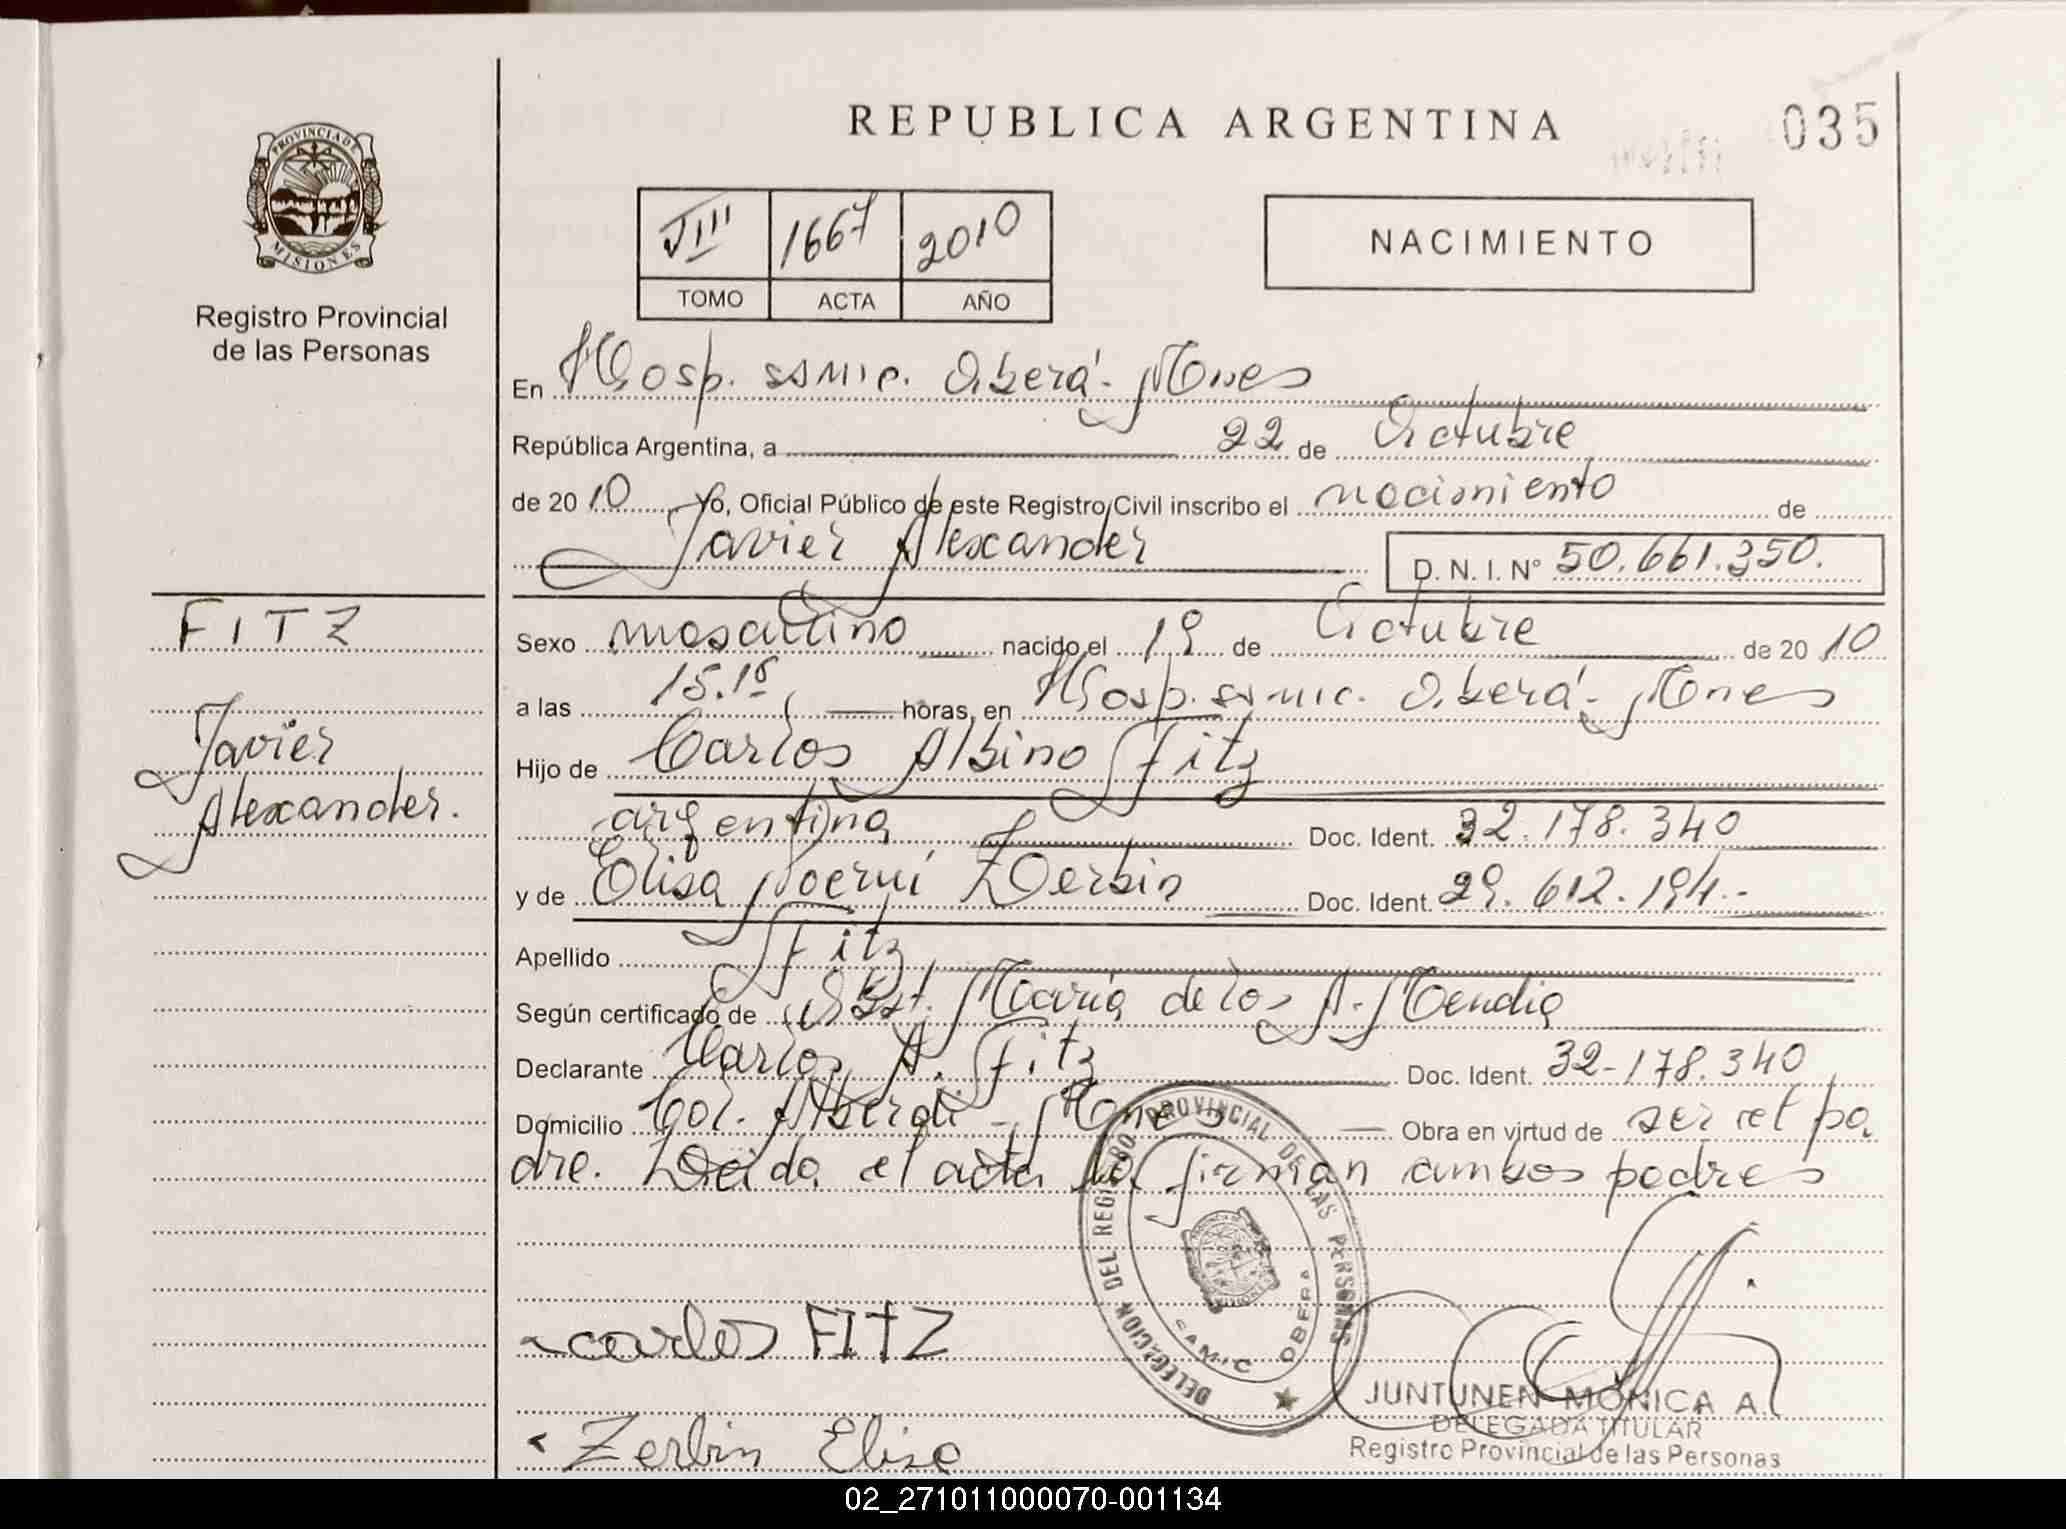 PROVINCIA DE
MISIONES
Registro Provincial
de las Personas
REPUBLICA ARGENTINA
035
VIII 1667 2010
TOMO ACTA AÑO
NACIMIENTO
En Hosp. ssmic. Oberá - Mnes
República Argentina, a 22 de Octubre
de 20 10 Yo, Oficial Público de este Registro Civil inscribo el nacimiento de
Javier Alexander D. N. I. N° 50.661.350.
FITZ
Javier
Alexander.
Sexo masculino nacido el 19 de Octubre de 20 10
a las 15.15 horas, en Hosp. ssmic. Oberá - Mnes
Hijo de Carlos Albino Fitz
argentina Doc. Ident. 32.178.340
y de Elisa Noemí Zerbin Doc. Ident. 29.612.194.-
Apellido Fitz
Según certificado de Obst. María de los A. Mendia
Declarante Carlos A. Fitz Doc. Ident. 32-178.340
Domicilio Col. Alberdi - Mnes Obra en virtud de ser el pa
dre. Leída el acta la firman ambos padres
DELEGACION DEL REGISTRO PROVINCIAL DE LAS PERSONAS
SAMIC OBERA
carlos FITZ
Zerbin Elisa
JUNTUNEN MONICA A.
DELEGADA TITULAR
Registro Provincial de las Personas
02_271011000070-001134